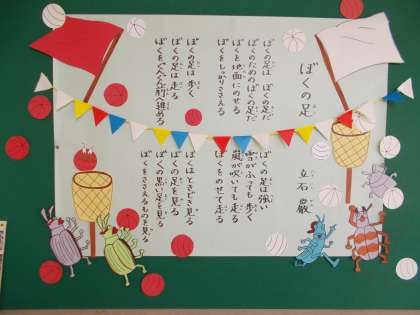 ぼくの足
立石 巌
ぼくの足は ぼくの足だ
ぼくのためのぼくの足だ
ぼくを地面にのせる
ぼくをしっかりささえる
ぼくの足は 歩く
ぼくの足は 走る
ぼくをぐんぐん前へ進める
ぼくの足は強い
雪がふっても歩く
嵐が吹いても走る
ぼくをのせて走る
ぼくはときどき見る
ぼくの足を見る
ぼくの黒い足を見る
ぼくをささえるものを見る